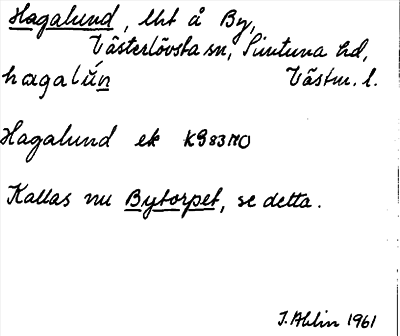 Hagalund, lht å By,
Västerlövsta sn, Simtuna hd,
hagalún Västm. l.
Hagalund ek KG83NO
Kallas nu Bytorpet, se detta.
J. Ahlin 1961